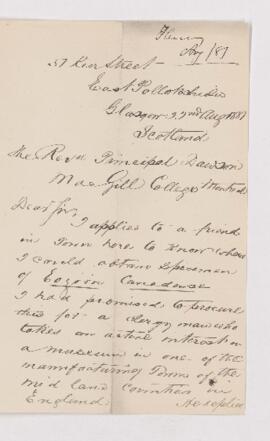 Aug/81
57 Kerr Street
East Pollokshields
Glasgow 22nd Aug 1881
Scotland
The Revd Principal Dawson
Mac Gill College Montreal
Dear Sir,
I applied to a friend
in Town here to know where
I could obtain specimen
of Eozoon Canadense
I had promised to procure
this for a clergyman who
takes an active interest in
a museum in one of the
manufacturing Towns of the
mid land counties in
England. He replied